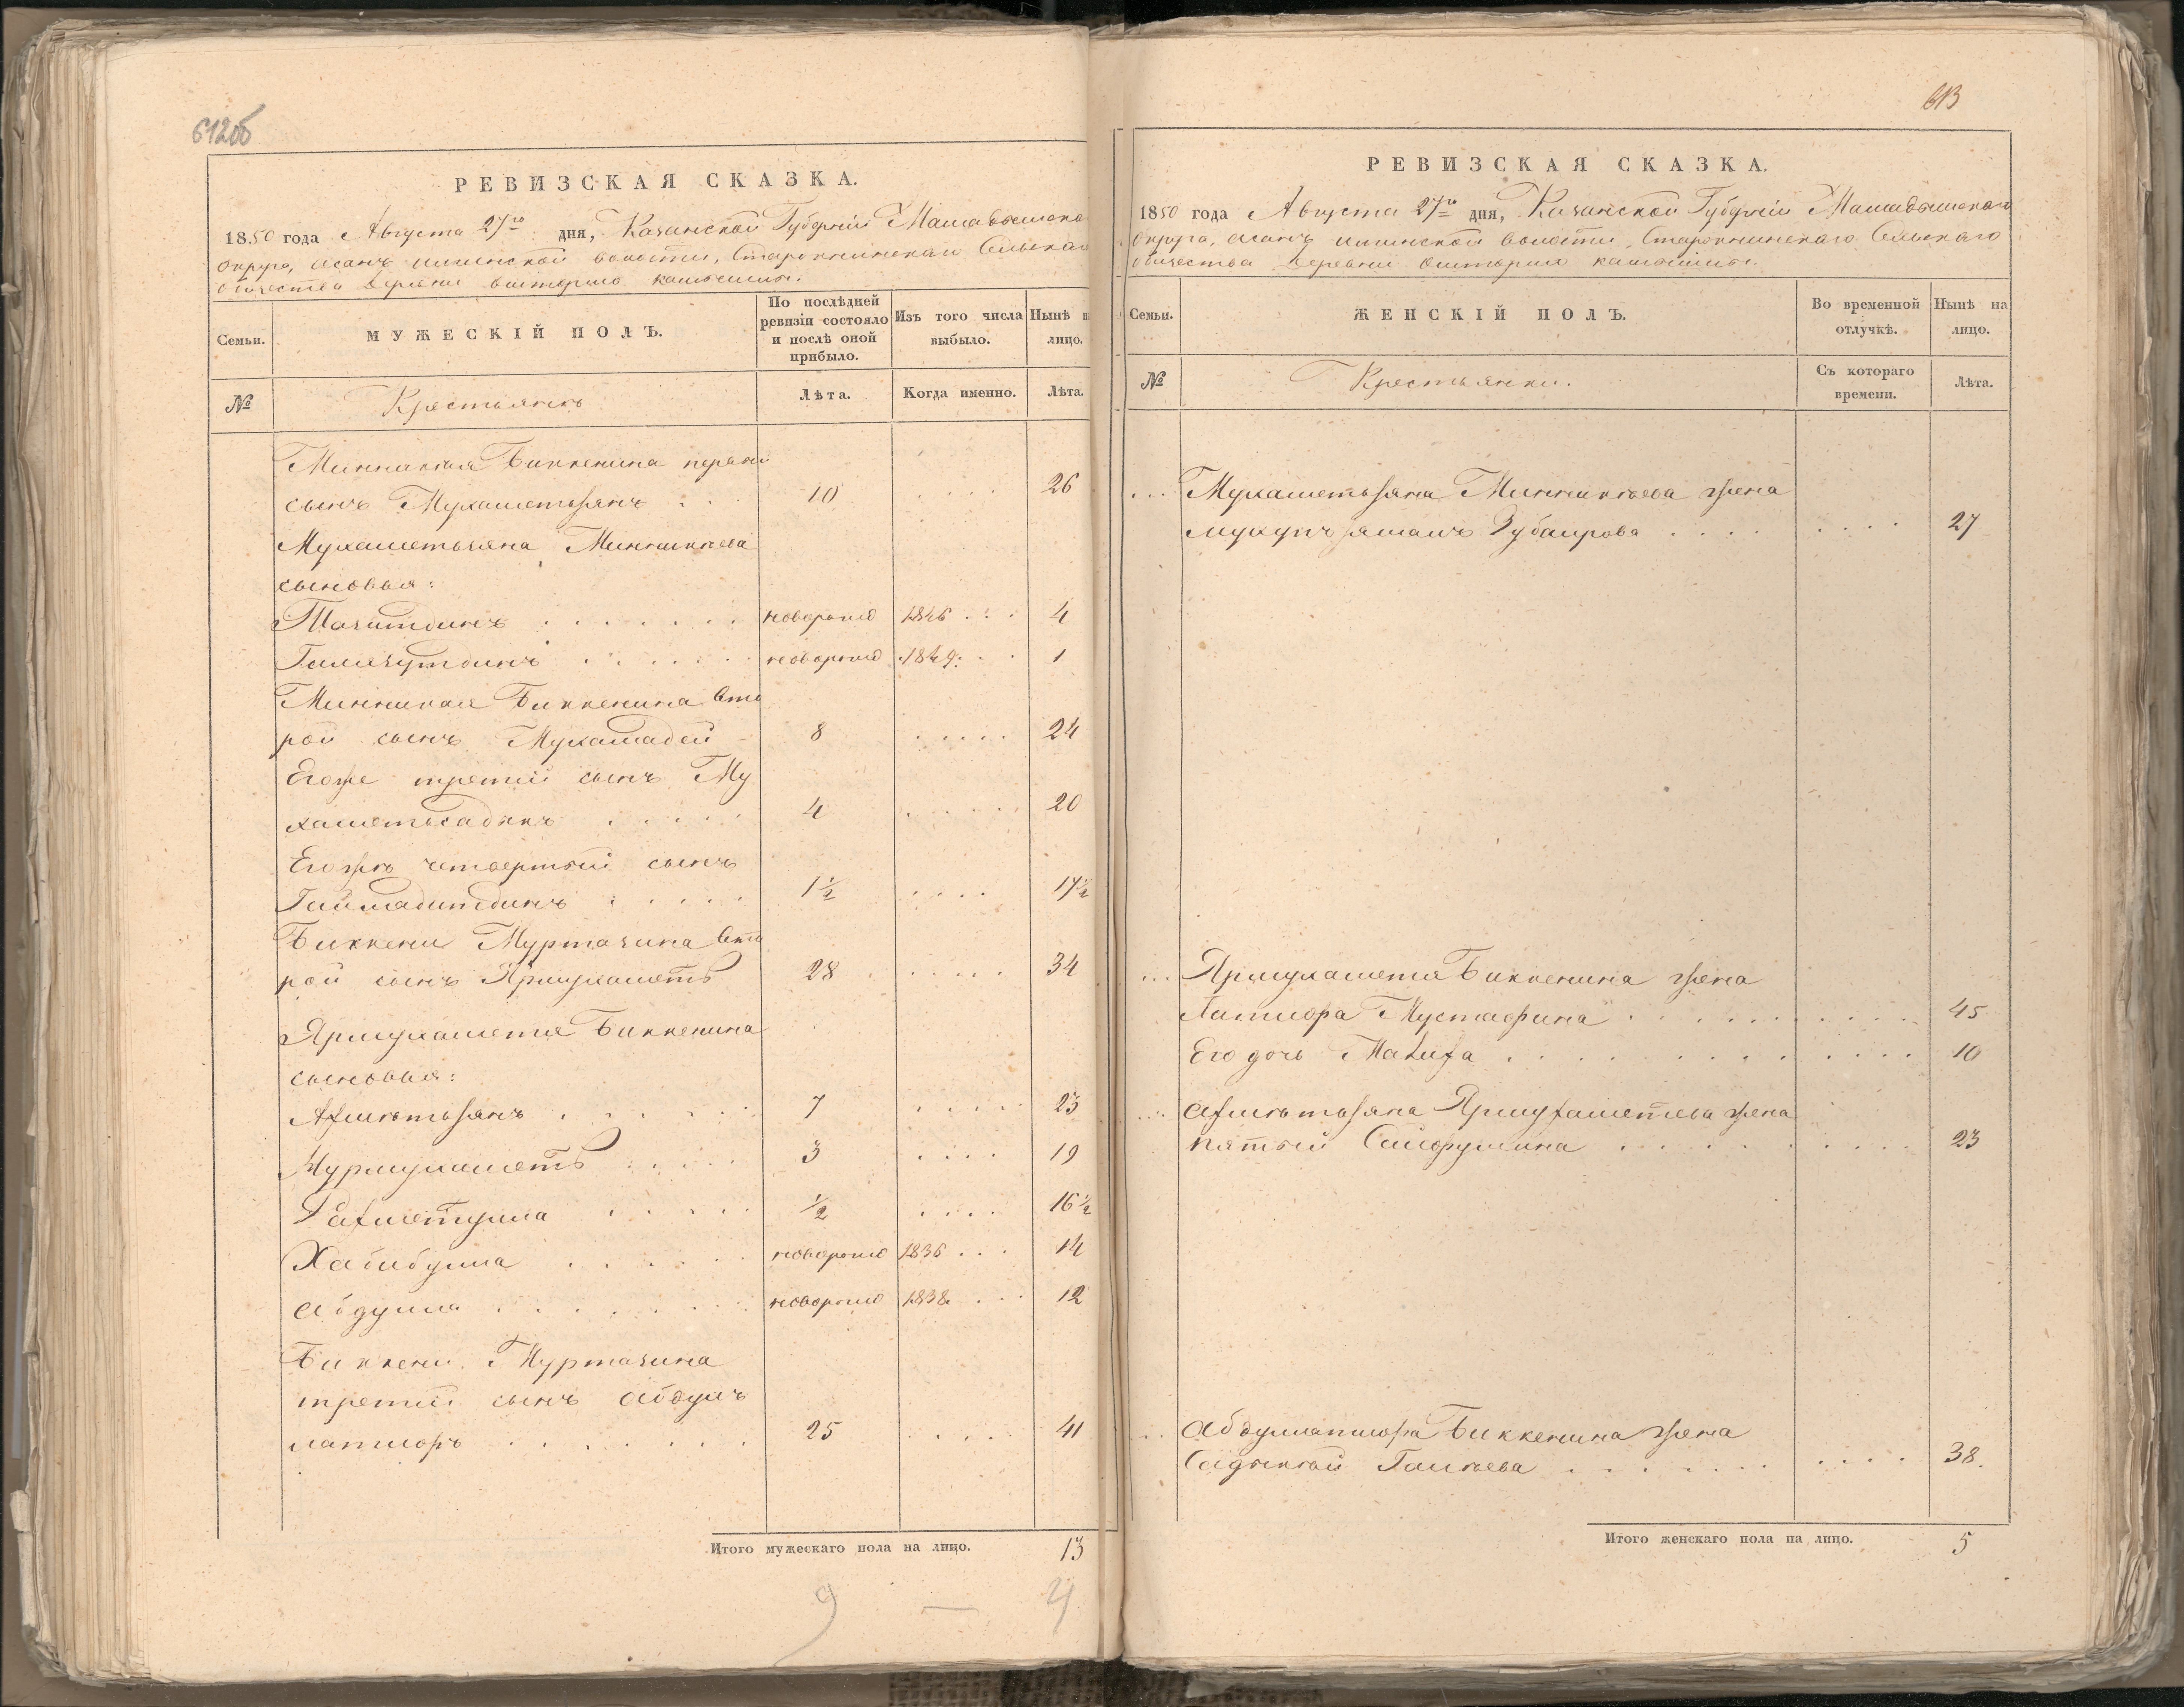 612об
РЕВИЗСКАЯ СКАЗКА.
1850 года Августа 27го дня, Казанской Губерніи Мамадышскаго
Округа, Асанъ Илгинской волости, Сельскаго
Общества деревни
Семьи.
МУЖЕСКІЙ ПОЛЪ.
По послѣдней ревизіи состояло и послѣ оной прибыло.
Изъ того числа выбыло.
Нынѣ на лицо.
№
Крестьянъ
Лѣта.
Когда именно.
Лѣта.
Миникея Биккенина первый
сынъ Мухаметьзянъ 10 26
Мухаметьзяна Миникеева
сыновья:
новорожд 1846 4
новорожд 1849 1
Миникея Биккенина вто
рой сынъ Мухамадей 8 24
Его же третій сынъ Му
хаметьсадыкъ 4 20
Его же четвертый сынъ
1½ 17½
Биккени Муртазина вто
рой сынъ Ярмухаметь 28 34
Ярмухаметя Биккенина
сыновья:
Ахметьзянъ 7 23
Нурмухаметь 3 19
Рахметулла ½ 16½
Хабибулла новорожд 1836 14
Абдулла новорожд 1838 12
Биккени Муртазина
третій сынъ Абдулъ
латифъ 25 41
Итого мужескаго пола на лицо. 13
9 — 4
613
РЕВИЗСКАЯ СКАЗКА.
1850 года Августа 27го дня, Казанской Губерніи Мамадышскаго
Округа, Асанъ Илгинской волости, Сельскаго
Общества деревни
Семьи.
ЖЕНСКІЙ ПОЛЪ.
Во временной отлучкѣ.
Нынѣ на лицо.
№
Крестьянки.
Съ котораго времени.
Лѣта.
Мухаметьзяна Миникеева жена
Зубаирова 27
Ярмухаметя Биккенина жена
Латифа Мустафина 45
Его дочь 10
Ахметьзяна Ярмухаметева жена
Сайфулина 23
Абдуллатифа Биккенина жена
Галеева 38.
Итого женскаго пола на лицо. 5